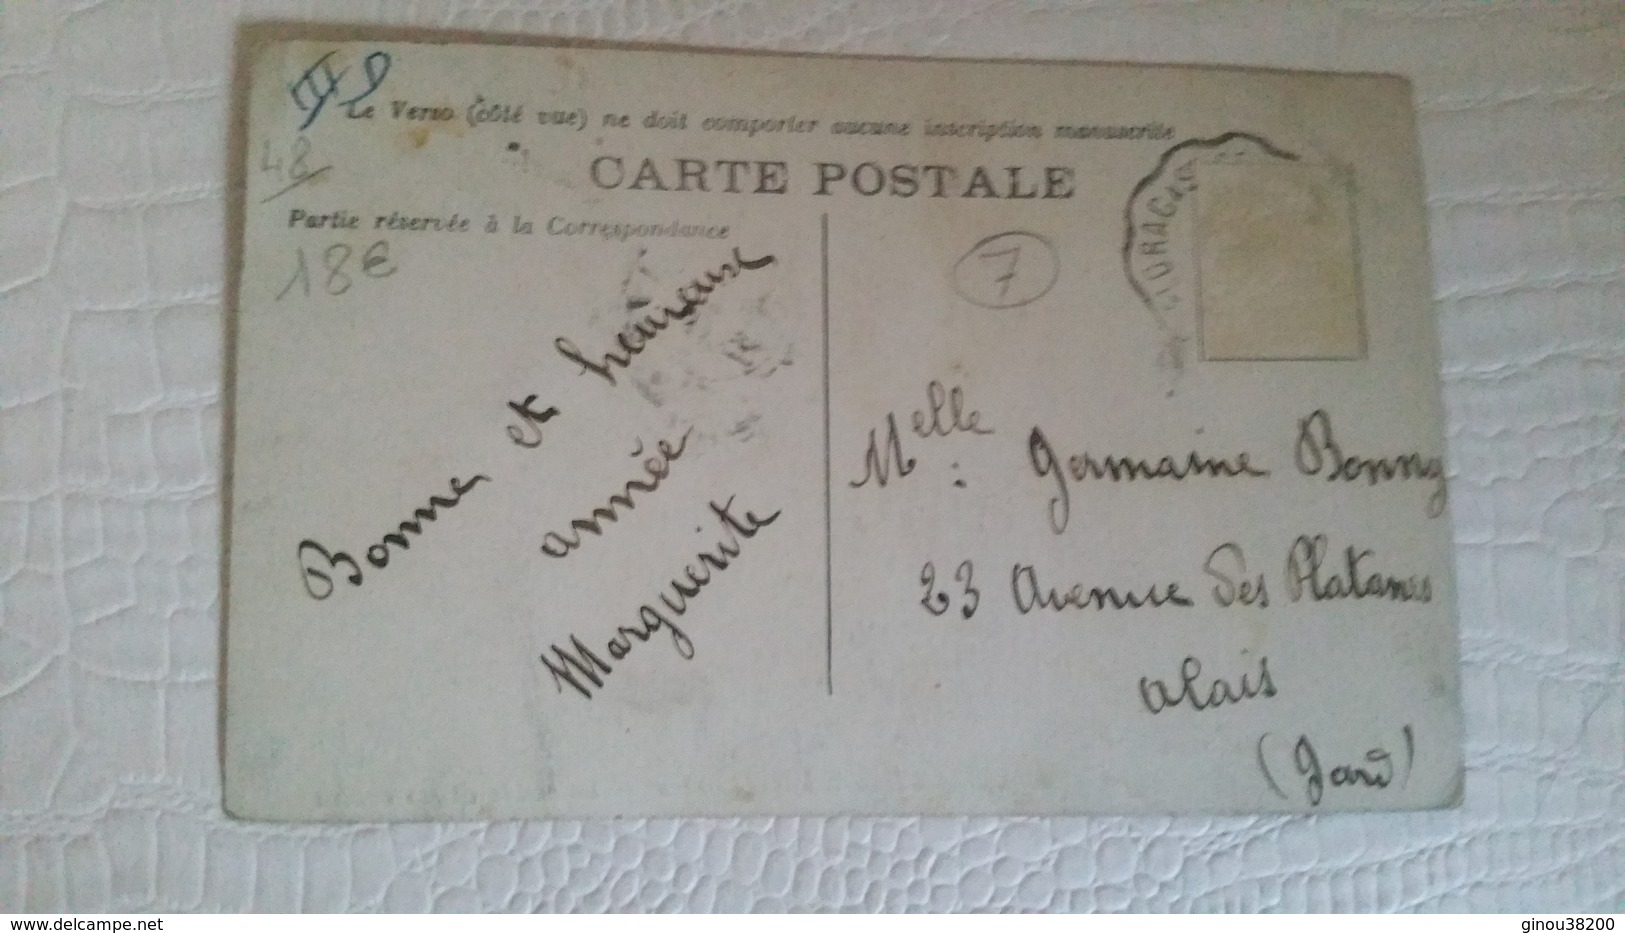 Le Verso (côté vue) ne doit comporter aucune inscription manuscrite
CARTE POSTALE
48
Partie réservée à la Correspondance
18€
7
Bonne et heureuse
année
Marguerite
Melle: Germaine Bonny
23 Avenue des Platanes
Alais
(Gard)
www.delcampe.net
ginou38200